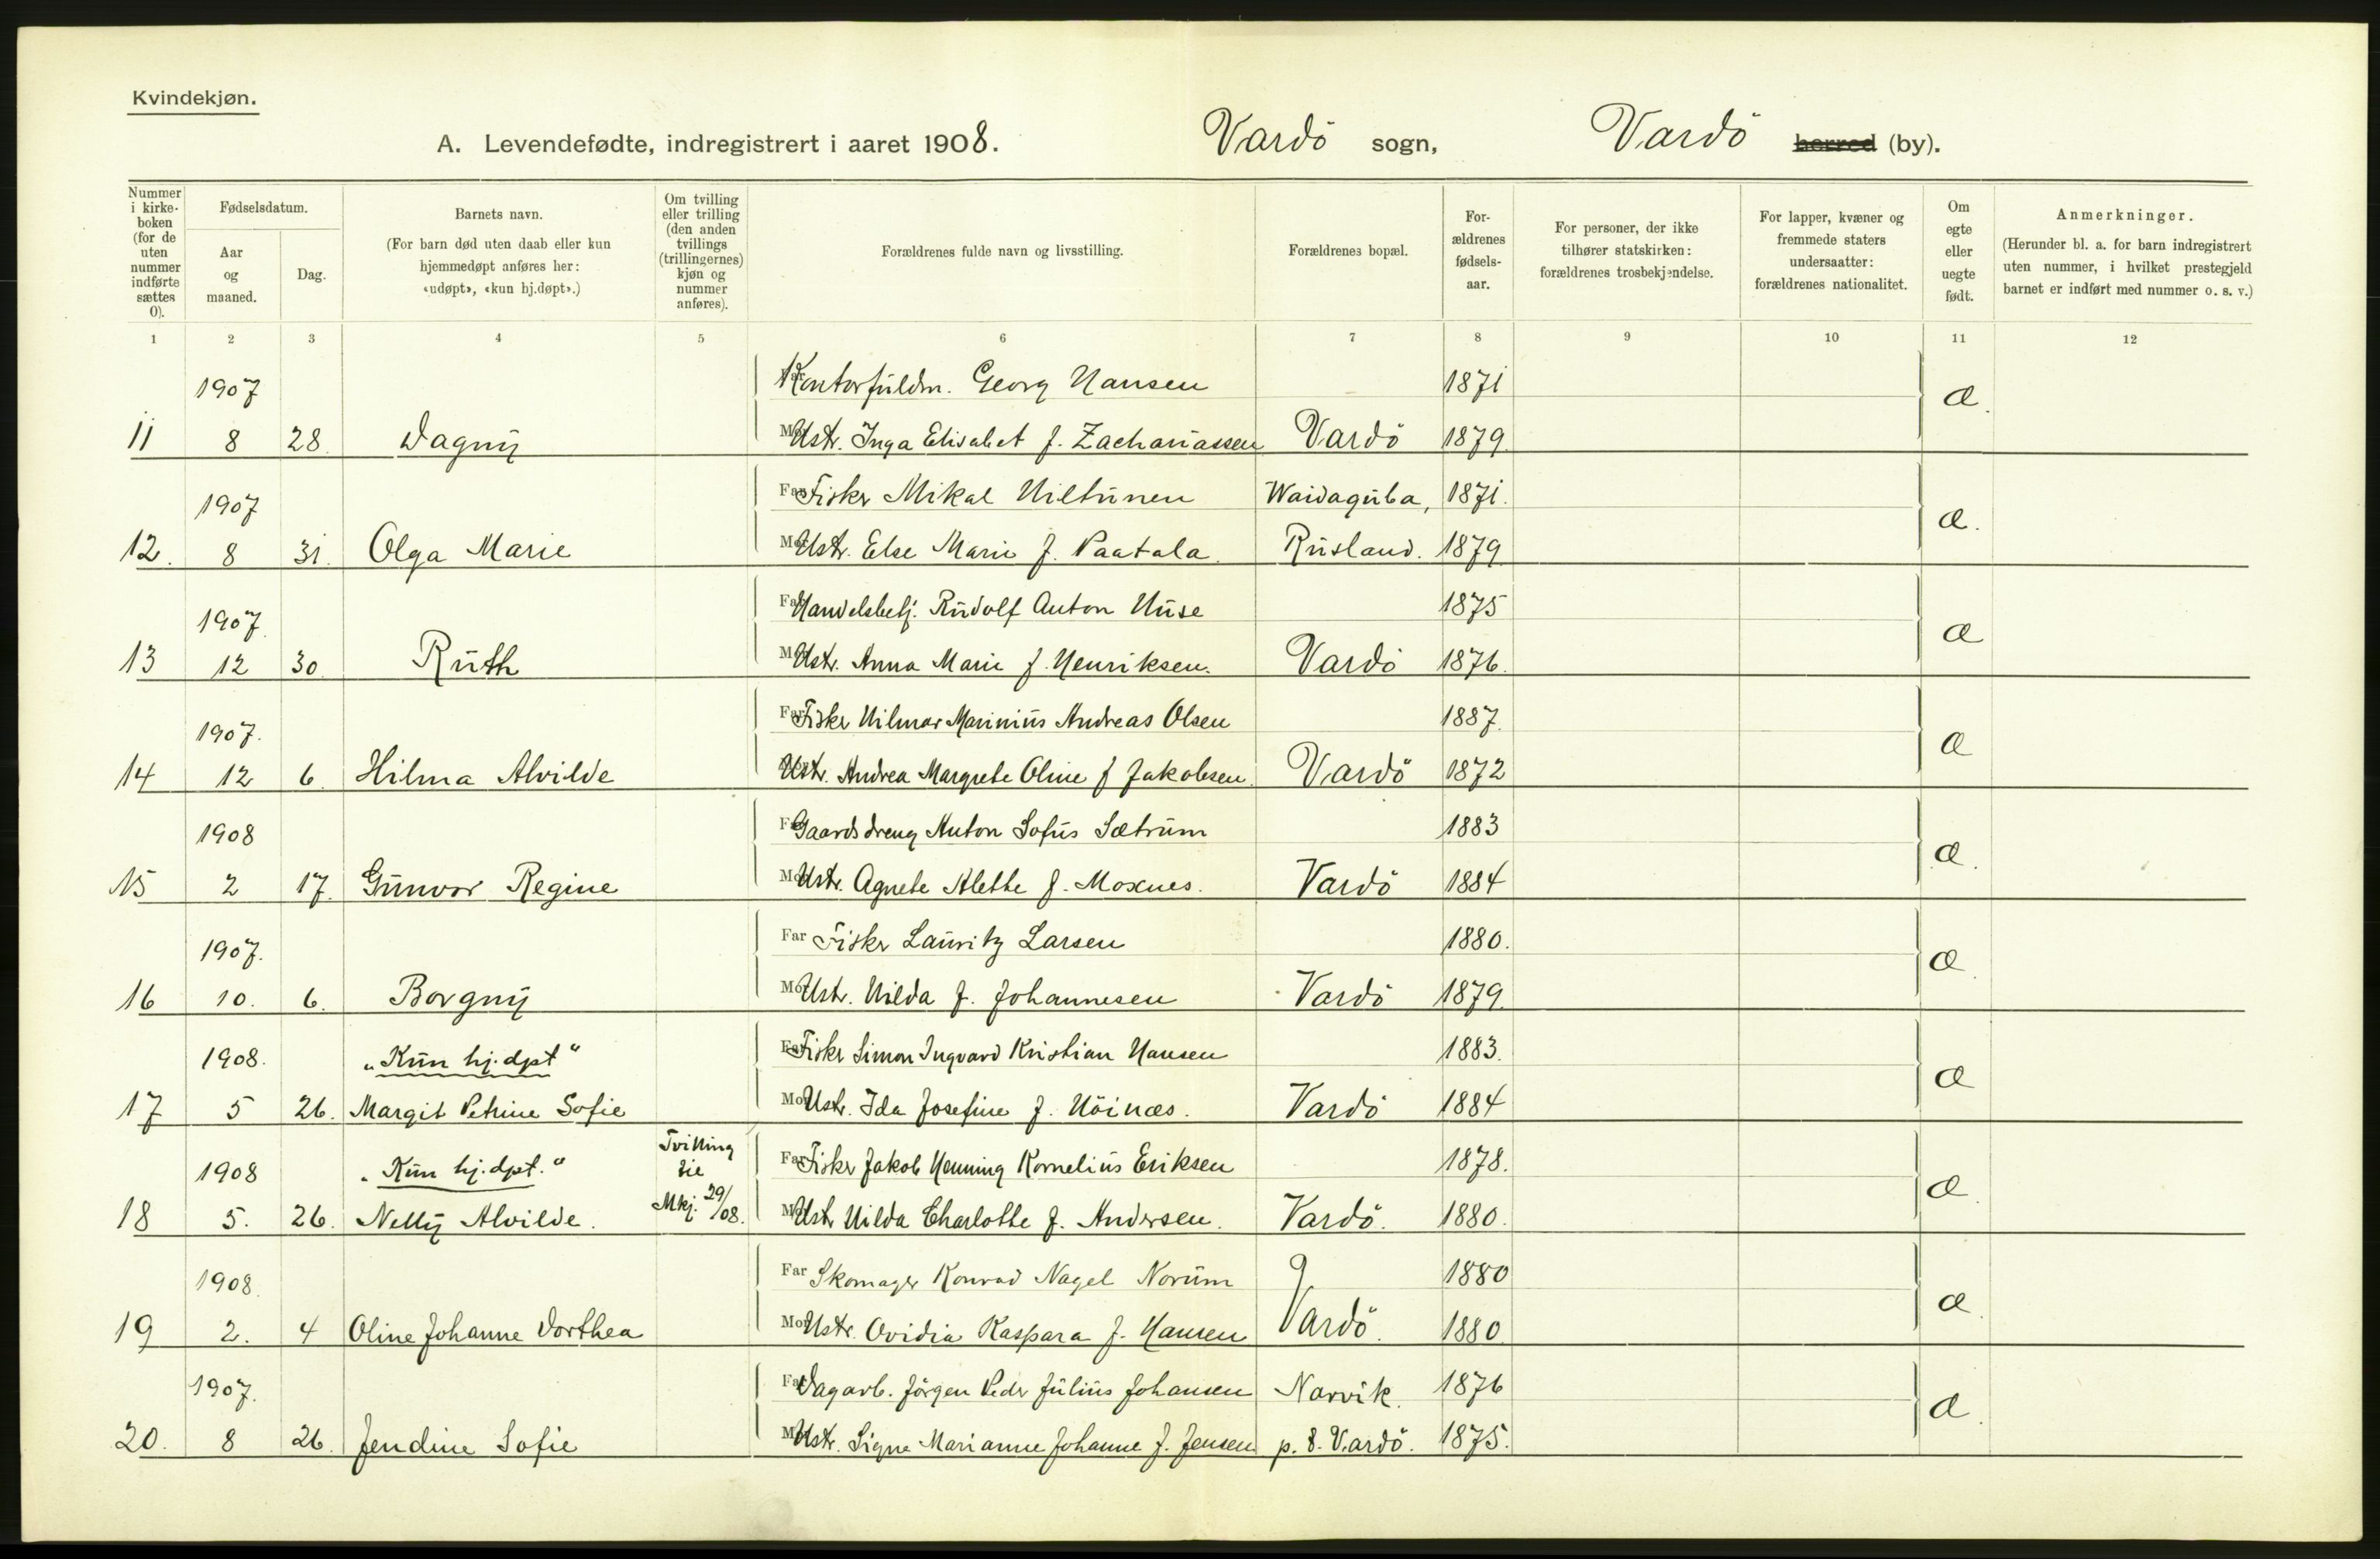 Kvindekjøn.
A. Levendefødte, indregistrert i aaret 1908. Vardö sogn, Vardö herred (by).
Nummer i kirkeboken (for de uten nummer indførte sættes 0).
Fødselsdatum.
Aar og maaned.
Dag.
Barnets navn.
(For barn død uten daab eller kun hjemmedøpt anføres her: «udøpt», «kun hj.døpt».)
Om tvilling eller trilling (den anden tvillings (trillingernes) kjøn og nummer anføres).
Forældrenes fulde navn og livsstilling.
Forældrenes bopæl.
For-ældrenes fødsels-aar.
For personer, der ikke tilhører statskirken: forældrenes trosbekjendelse.
For lapper, kvæner og fremmede staters undersaatter: forældrenes nationalitet.
Om egte eller uegte født.
Anmerkninger.
(Herunder bl. a. for barn indregistrert uten nummer, i hvilket prestegjeld barnet er indført med nummer o. s. v.)
1 2 3 4 5 6 7 8 9 10 11 12
1907 Far Kontorfuldm. Georg Hansen 1871 æ.
11 8 28. Dagny Mor Hstr. Inga Elisabet f. Zachariassen Vardö 1879.
1907 Far Fisker Mikal Hiltunen Waidaguba, 1871. æ.
12. 8 31. Olga Marie Mor Hstr. Else Marie f. Paatala. Rusland. 1879.
1907. Far Handelsbetj. Rudolf Anton Huse 1875 æ
13 12 30. Ruth Mor Hstr. Anna Marie f. Henriksen. Vardö 1876.
1907. Far Fisker Hilmar Marinius Andreas Olsen 1887. æ
14 12 6. Hilma Alvilde Mor Hstr. Andrea Margrete Oline f Jakobsen. Vardö 1872
1908 Far Gaardsdreng Anton Sofus Sætrum 1883 æ.
15 2 17. Gunvor Regine Mor Hstr. Agnete Alette f. Moxnes. Vardö 1884
1907. Far Fisker Lauritz Larsen 1880. æ
16 10. 6. Borgny Mor Hstr. Hilda f. Johannesen Vardö 1879.
1908. „Kun hj.dpt“ Far Fisker Simon Ingvard Kristian Hansen 1883. æ
17 5 26. Margit Petrine Sofie Mor Hstr. Ida Josefine f. Höinæs. Vardö 1884
1908 „Kun hj.dpt.“ Tvilling sie Far Fisker Jakob Henning Kornelius Eriksen 1878. æ.
18 5. 26. Nelly Alvilde. Mkj. 29/08. Mor Hstr Hilda Charlotte f. Andersen. Vardö. 1880.
1908. Far Skomager Konrad Nagel Norum 1880 æ.
19 2. 4 Oline Johanne Dorthea Mor Hstr. Ovidia Kaspara f. Hansen Vardö. 1880.
1907. Far Dagarb. Jörgen Peder Julius Johansen Narvik. 1876 æ.
20. 8 26. Jendine Sofie Mor Hstr. Signe Marianne Johanne f. Jensen p. t. Vardö. 1875.